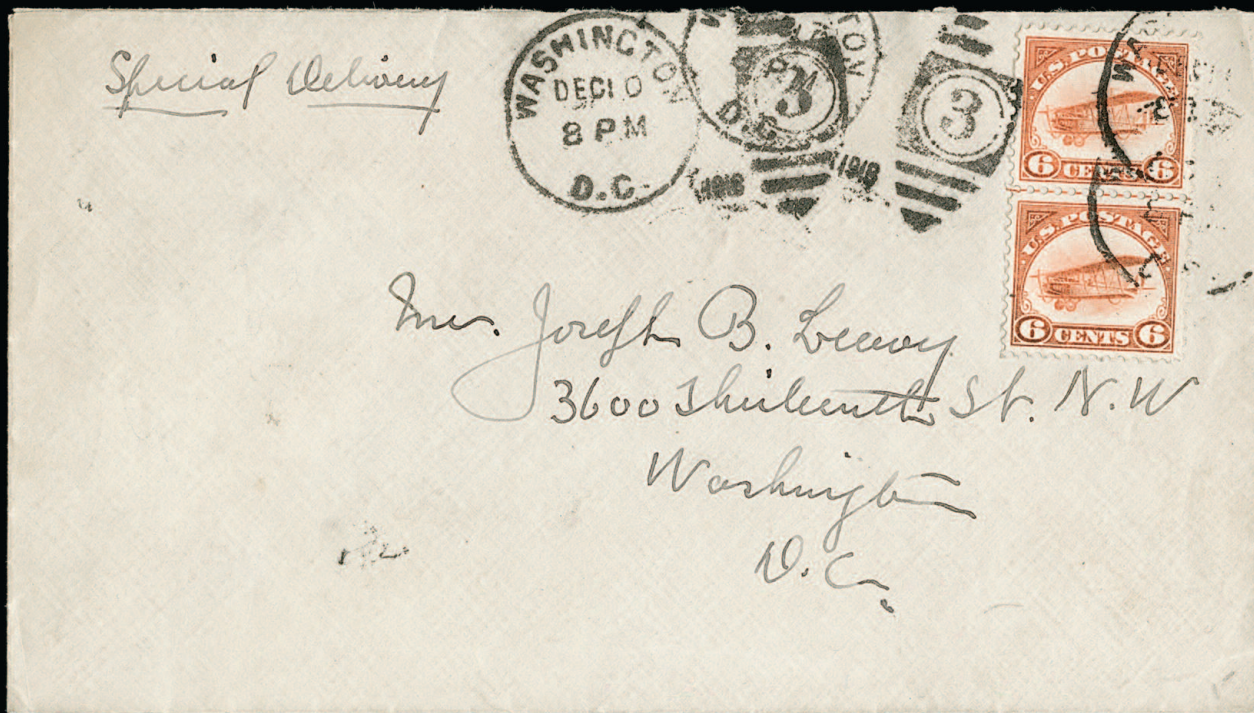 Special Delivery
WASHINGTON
DEC 10
8 PM
D.C.
TON
D.C.
3
3
1918
1918
WA
U.S. POSTAGE
6 CENTS 6
U.S. POSTAGE
6 CENTS 6
Mr. Joseph B. Leavy
3600 Thirteenth St. N.W
Washington
D.C.